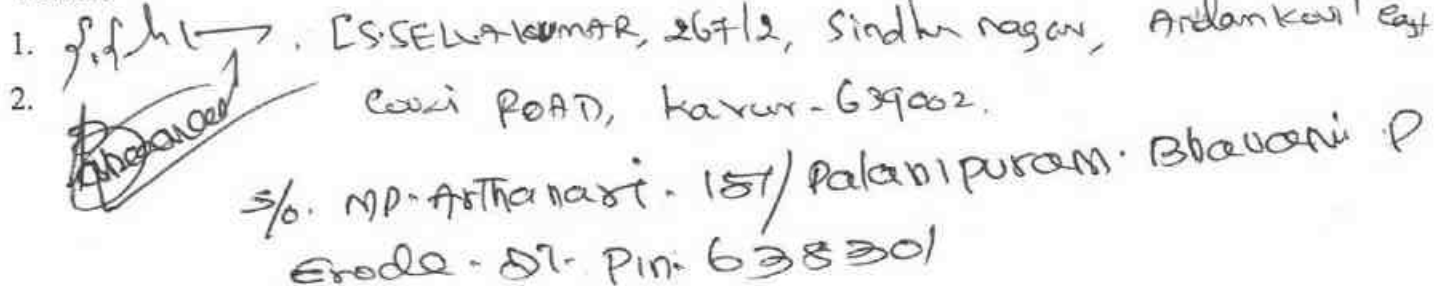 1. [S.SELVAKUMAR, 267/2, Sindhu nagar, Andankovil East
2. Covai ROAD, Karur-639002.
S/o. MP. Arthanari. 157/ Palanipuram. Bhavani P
Erode. Dt. Pin. 638301